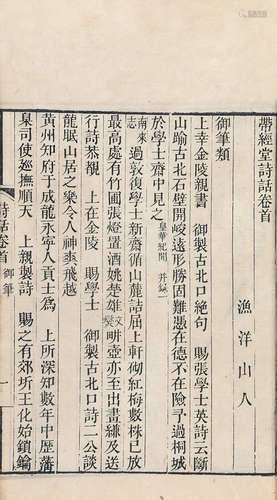 帶經堂詩話卷首
漁洋山人
御筆類
上幸金陵親書 御製古北口絶句 賜張學士英詩云斷
山踰古北石壁開峻遠形勝固難憑在德不在險予過桐城
於學士齋中見之皇華紀聞 并錄一
南來志 過敦復學士新齋循山麓詰屈上軒砌紅梅數株已放
最高處有竹圃張燈置酒姚楚雄文燮畊壺亦至出畫縑及送
行詩恭覩 上在金陵 賜學士 御製古北口詩二公談
龍眠山居之樂令人神爽飛越
黃州知府于成龍永寧人貢士爲 上所深知數年中歷藩
臬司使巡撫順天 上親製詩 賜之有郊圻王化始鎖鑰
詩話卷首 御筆 一